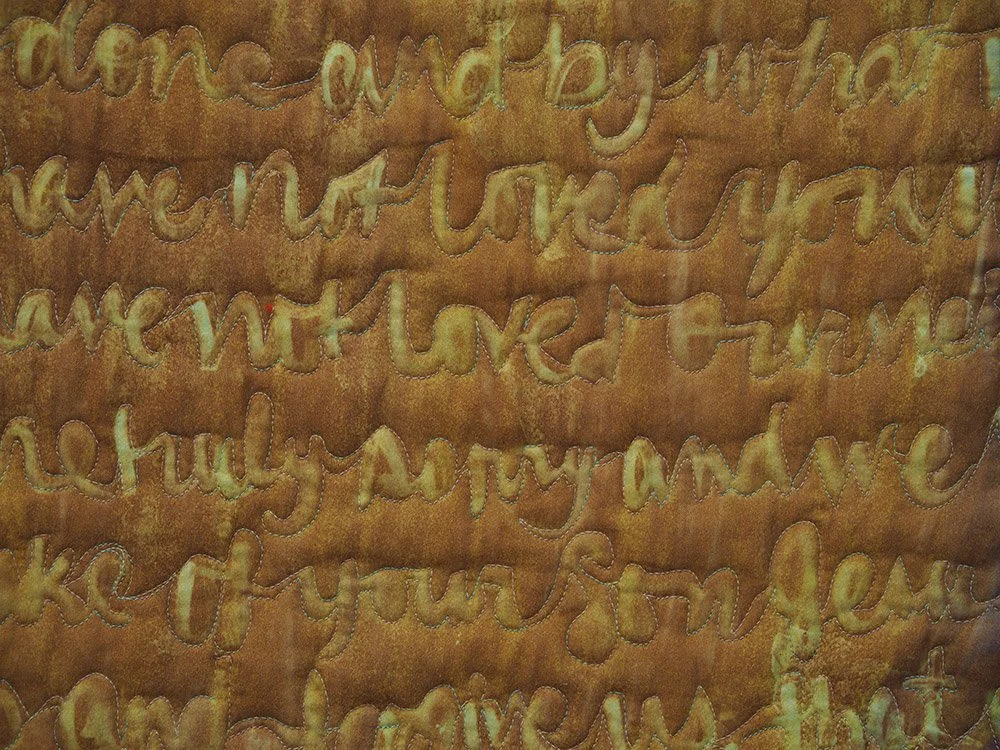 done and by what w
have not loved you w
have not loved our ne
re truly sorry and we
ke of your Son Jesu
and forgive us that